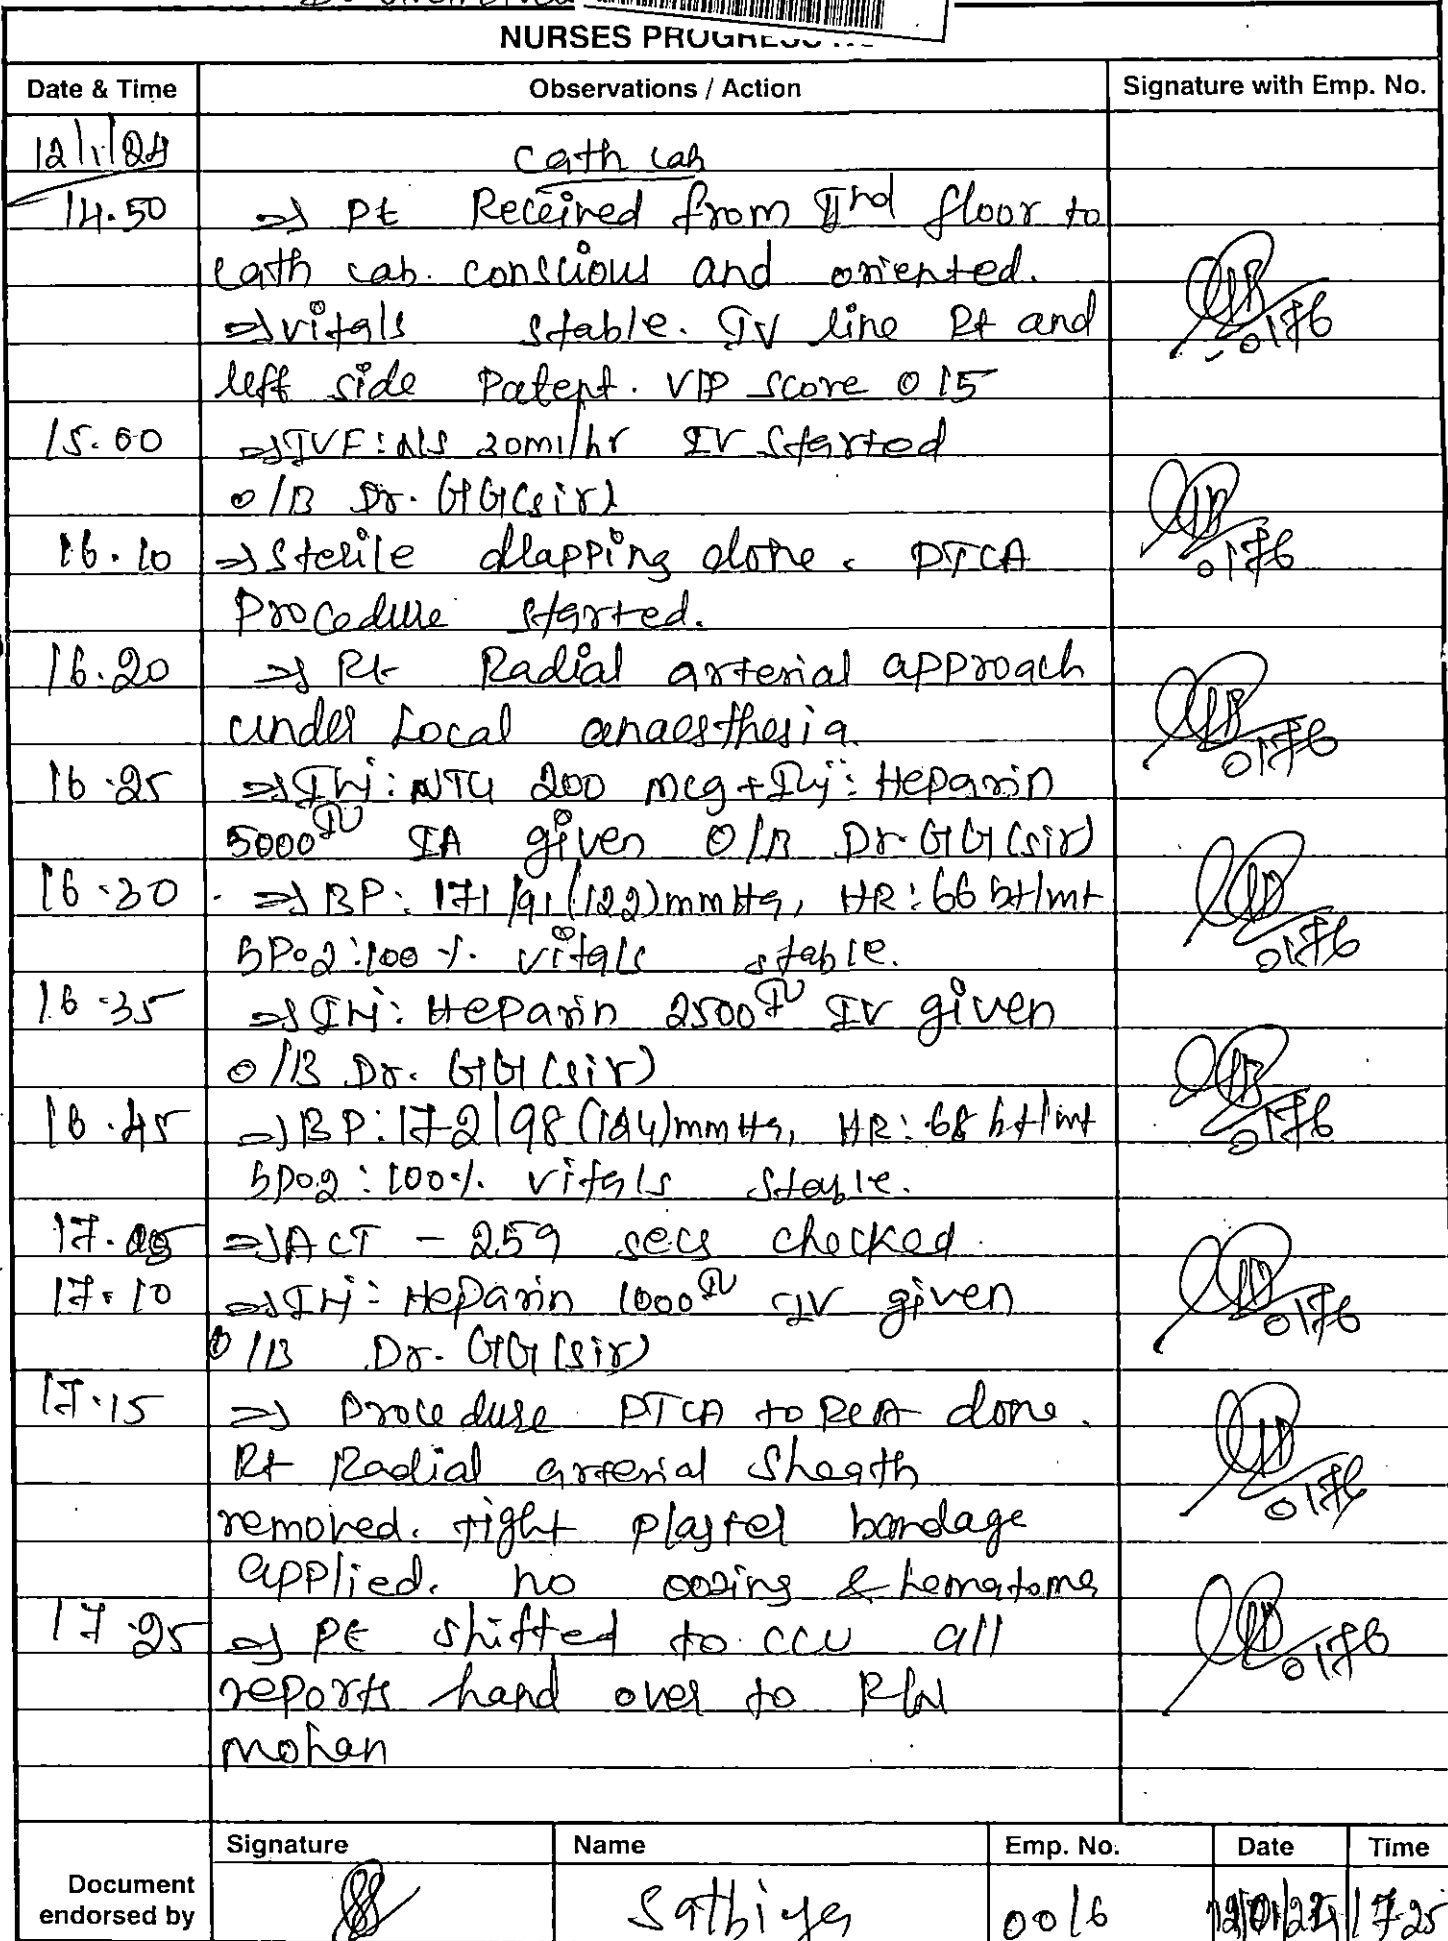 NURSES PROGRESS
Date & Time Observations / Action Signature with Emp. No.
12/1/24 Cath Lab
14.50 => Pt Received from IInd floor to
cath lab. conscious and oriented.
=> vitals stable. IV line Rt and
left side Patent. VIP score 0/5
0176
15.00 => IVF: NS 30ml/hr IV Started
O/B Dr. GG (sir)
0176
16.10 => Sterile drapping done. PTCA
Procedure started.
16.20 => Rt Radial arterial approach
under Local anaesthesia.
0176
16.25 => Inj: NTG 200 mcg + Inj: Heparin
5000 IU IA given O/B Dr. GG (sir)
16.30 => BP: 171/91 (122) mmHg, HR: 66 bt/mt
SPO2: 100 %. vitals stable.
0176
16.35 => Inj: Heparin 2500 IU IV given
O/B Dr. GG (sir)
16.45 => BP: 172/98 (124) mmHg, HR: 68 bt/mt
SPO2: 100%. vitals stable.
0176
17.05 => ACT - 259 secs checked.
17.10 => Inj: Heparin 1000 IU IV given
O/B Dr. GG (sir)
0176
17.15 => Procedure PTCA to RCA done.
Rt Radial arterial Sheath
removed. tight plaster bandage
applied. no oozing & hematoma
0176
17.25 => Pt shifted to CCU all
reports hand over to R/N
mohan
0176
Signature Name Emp. No. Date Time
Document endorsed by Sathiya 0016 12/01/24 17.25